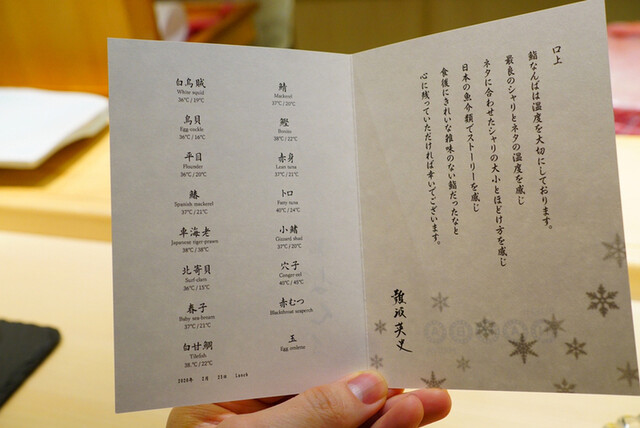 白烏賊
White squid
36℃/19℃
鳥貝
Egg cockle
36℃/16℃
平目
Flounder
36℃/20℃
鰆
Spanish mackerel
37℃/21℃
車海老
Japanese tiger prawn
38℃/38℃
北寄貝
Surf clam
36℃/15℃
春子
Baby sea-bream
37℃/21℃
白甘鯛
Tilefish
38℃/22℃
鯖
Mackerel
37℃/20℃
鰹
Bonito
38℃/22℃
赤身
Lean tuna
37℃/21℃
トロ
Fatty tuna
40℃/24℃
小鰭
Gizzard shad
37℃/20℃
穴子
Conger-eel
40℃/45℃
赤むつ
Blackthroat seaperch
玉
Egg omlette
Lunch
口上
鮨なんばは温度を大切にしております。
最良のシャリとネタの温度を感じ
ネタに合わせたシャリの大小とほどけ方を感じ
日本の魚介類でストーリーを感じ
食後にきれいな雑味のない鮨だったなと
心に残っていただければ幸いでございます。
難波英史